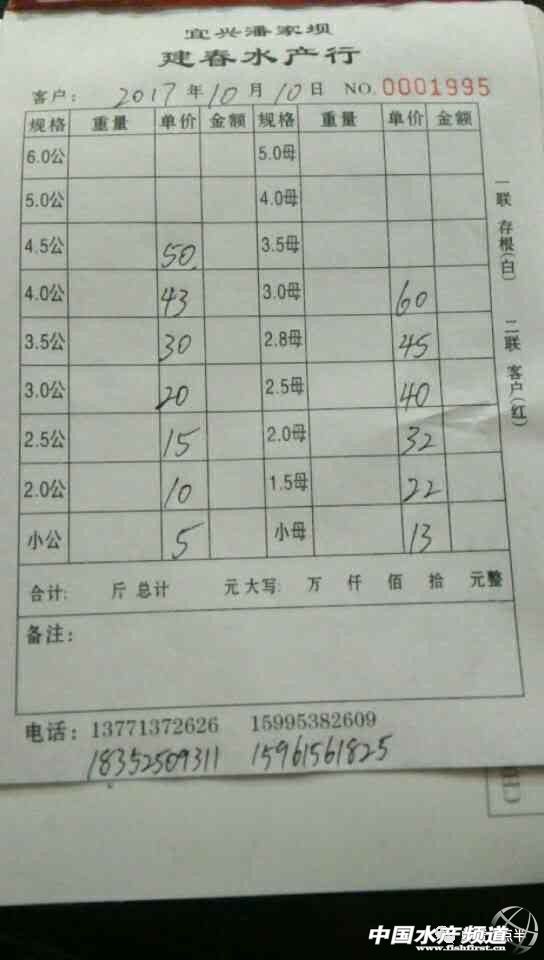 宜兴潘家坝
建春水产行
客户: 2017 年 10 月 10 日 NO. 0001995
规格 重量 单价 金额 规格 重量 单价 金额
6.0公 5.0母
5.0公 4.0母
4.5公 50 3.5母
4.0公 43 3.0母 60
3.5公 30 2.8母 45
3.0公 20 2.5母 40
2.5公 15 2.0母 32
2.0公 10 1.5母 22
小公 5 小母 13
合计: 斤 总计 元 大写: 万 仟 佰 拾 元整
备注:
电话: 13771372626 15995382609
18352509311 15961561825
一联 存根(白) 二联 客户(红)
中国水产频道
www.fishfirst.cn